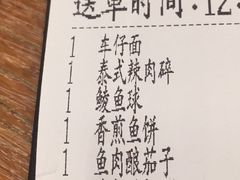 送单时间:12:
1 车仔面
1 泰式辣肉碎
1 鲮鱼球
1 香煎鱼饼
1 鱼肉酿茄子